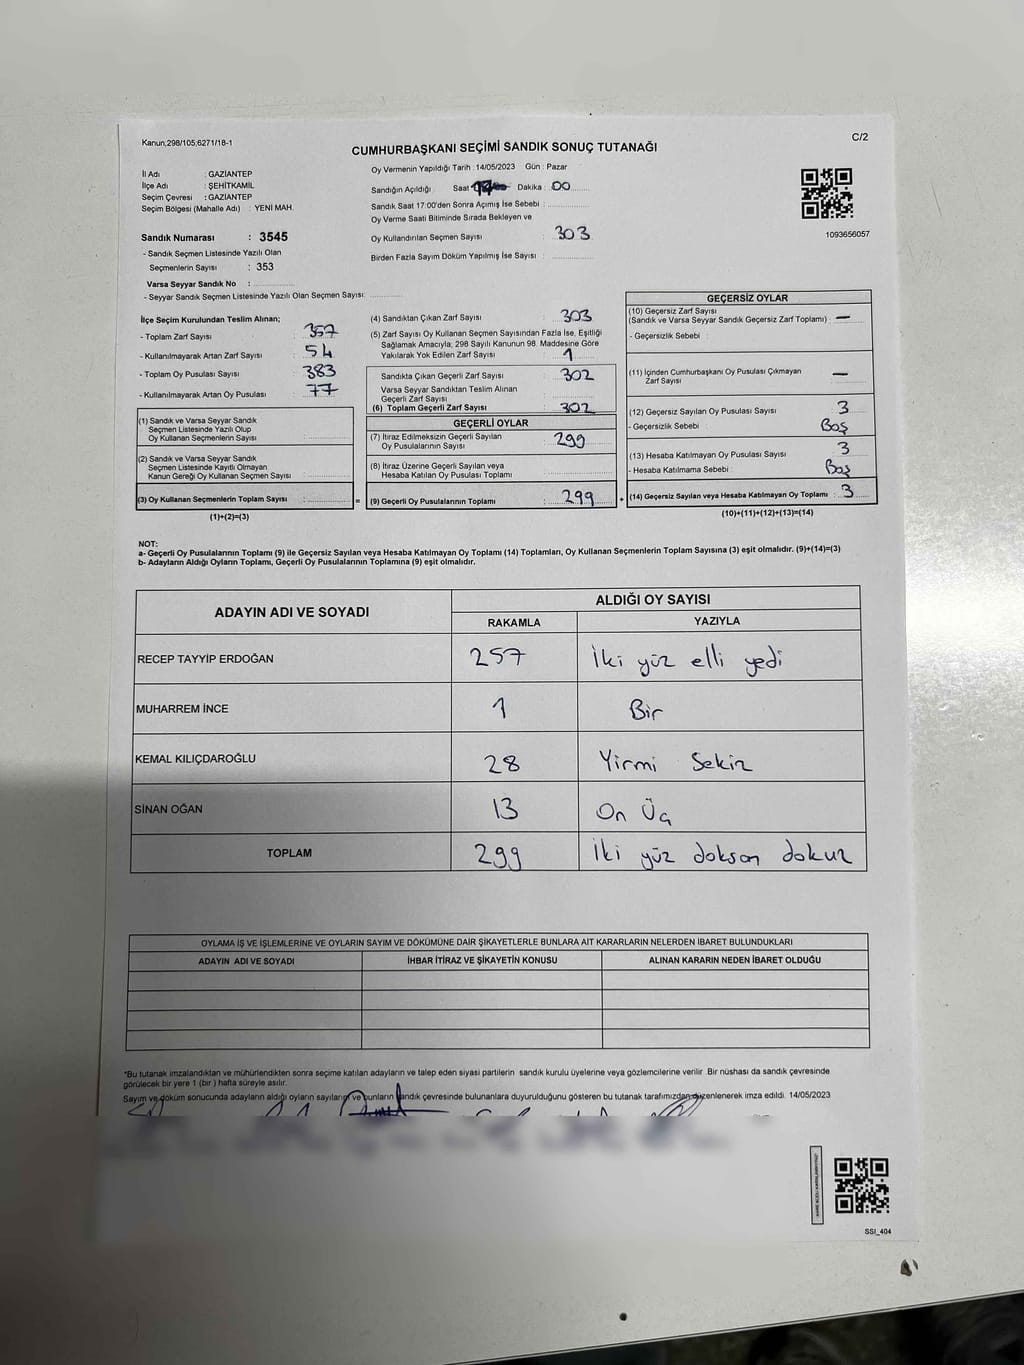 Kanun;298/105;6271/18-1
C/2
CUMHURBAŞKANI SEÇİMİ SANDIK SONUÇ TUTANAĞI
İl Adı : GAZİANTEP
İlçe Adı : ŞEHİTKAMİL
Seçim Çevresi : GAZİANTEP
Seçim Bölgesi (Mahalle Adı) : YENİ MAH.
Sandık Numarası : 3545
- Sandık Seçmen Listesinde Yazılı Olan
Seçmenlerin Sayısı : 353
Varsa Seyyar Sandık No :
- Seyyar Sandık Seçmen Listesinde Yazılı Olan Seçmen Sayısı:
Oy Vermenin Yapıldığı Tarih : 14/05/2023 Gün : Pazar
Sandığın Açıldığı Saat Dakika : 00
Sandık Saat 17:00'den Sonra Açımış İse Sebebi :
Oy Verme Saati Bitiminde Sırada Bekleyen ve
Oy Kullandırılan Seçmen Sayısı : 303
Birden Fazla Sayım Döküm Yapılmış İse Sayısı :
1093656057
İlçe Seçim Kurulundan Teslim Alınan;
- Toplam Zarf Sayısı : 357
- Kullanılmayarak Artan Zarf Sayısı : 54
- Toplam Oy Pusulası Sayısı : 383
- Kullanılmayarak Artan Oy Pusulası : 77
(1) Sandık ve Varsa Seyyar Sandık
Seçmen Listesinde Yazılı Olup
Oy Kullanan Seçmenlerin Sayısı :
(2) Sandık ve Varsa Seyyar Sandık
Seçmen Listesinde Kayıtlı Olmayan
Kanun Gereği Oy Kullanan Seçmen Sayısı :
(3) Oy Kullanan Seçmenlerin Toplam Sayısı : =
(1)+(2)=(3)
(4) Sandıktan Çıkan Zarf Sayısı : 303
(5) Zarf Sayısı Oy Kullanan Seçmen Sayısından Fazla İse, Eşitliği
Sağlamak Amacıyla; 298 Sayılı Kanunun 98. Maddesine Göre
Yakılarak Yok Edilen Zarf Sayısı : 1
Sandıkta Çıkan Geçerli Zarf Sayısı : 302
Varsa Seyyar Sandıktan Teslim Alınan
Geçerli Zarf Sayısı :
(6) Toplam Geçerli Zarf Sayısı : 302
GEÇERLİ OYLAR
(7) İtiraz Edilmeksizin Geçerli Sayılan
Oy Pusulalarının Sayısı : 299
(8) İtiraz Üzerine Geçerli Sayılan veya
Hesaba Katılan Oy Pusulası Toplamı :
(9) Geçerli Oy Pusulalarının Toplamı : 299 +
GEÇERSİZ OYLAR
(10) Geçersiz Zarf Sayısı
(Sandık ve Varsa Seyyar Sandık Geçersiz Zarf Toplamı) : —
- Geçersizlik Sebebi :
(11) İçinden Cumhurbaşkanı Oy Pusulası Çıkmayan
Zarf Sayısı : —
(12) Geçersiz Sayılan Oy Pusulası Sayısı : 3
- Geçersizlik Sebebi : Boş
(13) Hesaba Katılmayan Oy Pusulası Sayısı : 3
- Hesaba Katılmama Sebebi : Boş
(14) Geçersiz Sayılan veya Hesaba Katılmayan Oy Toplamı : 3
(10)+(11)+(12)+(13)=(14)
NOT:
a- Geçerli Oy Pusulalarının Toplamı (9) ile Geçersiz Sayılan veya Hesaba Katılmayan Oy Toplamı (14) Toplamları, Oy Kullanan Seçmenlerin Toplam Sayısına (3) eşit olmalıdır. (9)+(14)=(3)
b- Adayların Aldığı Oyların Toplamı, Geçerli Oy Pusulalarının Toplamına (9) eşit olmalıdır.
ADAYIN ADI VE SOYADI
ALDIĞI OY SAYISI
RAKAMLA YAZIYLA
RECEP TAYYİP ERDOĞAN 257 İki yüz elli yedi
MUHARREM İNCE 1 Bir
KEMAL KILIÇDAROĞLU 28 Yirmi Sekiz
SİNAN OĞAN 13 On Üç
TOPLAM 299 İki yüz dokson dokuz
OYLAMA İŞ VE İŞLEMLERİNE VE OYLARIN SAYIM VE DÖKÜMÜNE DAİR ŞİKAYETLERLE BUNLARA AİT KARARLARIN NELERDEN İBARET BULUNDUKLARI
ADAYIN ADI VE SOYADI İHBAR İTİRAZ VE ŞİKAYETİN KONUSU ALINAN KARARIN NEDEN İBARET OLDUĞU
*Bu tutanak imzalandıktan ve mühürlendikten sonra seçime katılan adayların ve talep eden siyasi partilerin sandık kurulu üyelerine veya gözlemcilerine verilir. Bir nüshası da sandık çevresinde
görülecek bir yere 1 (bir ) hafta süreyle asılır.
Sayım ve döküm sonucunda adayların aldığı oyların sayıları ve bunların sandık çevresinde bulunanlara duyurulduğunu gösteren bu tutanak tarafımızdan düzenlenerek imza edildi. 14/05/2023
SSI_404